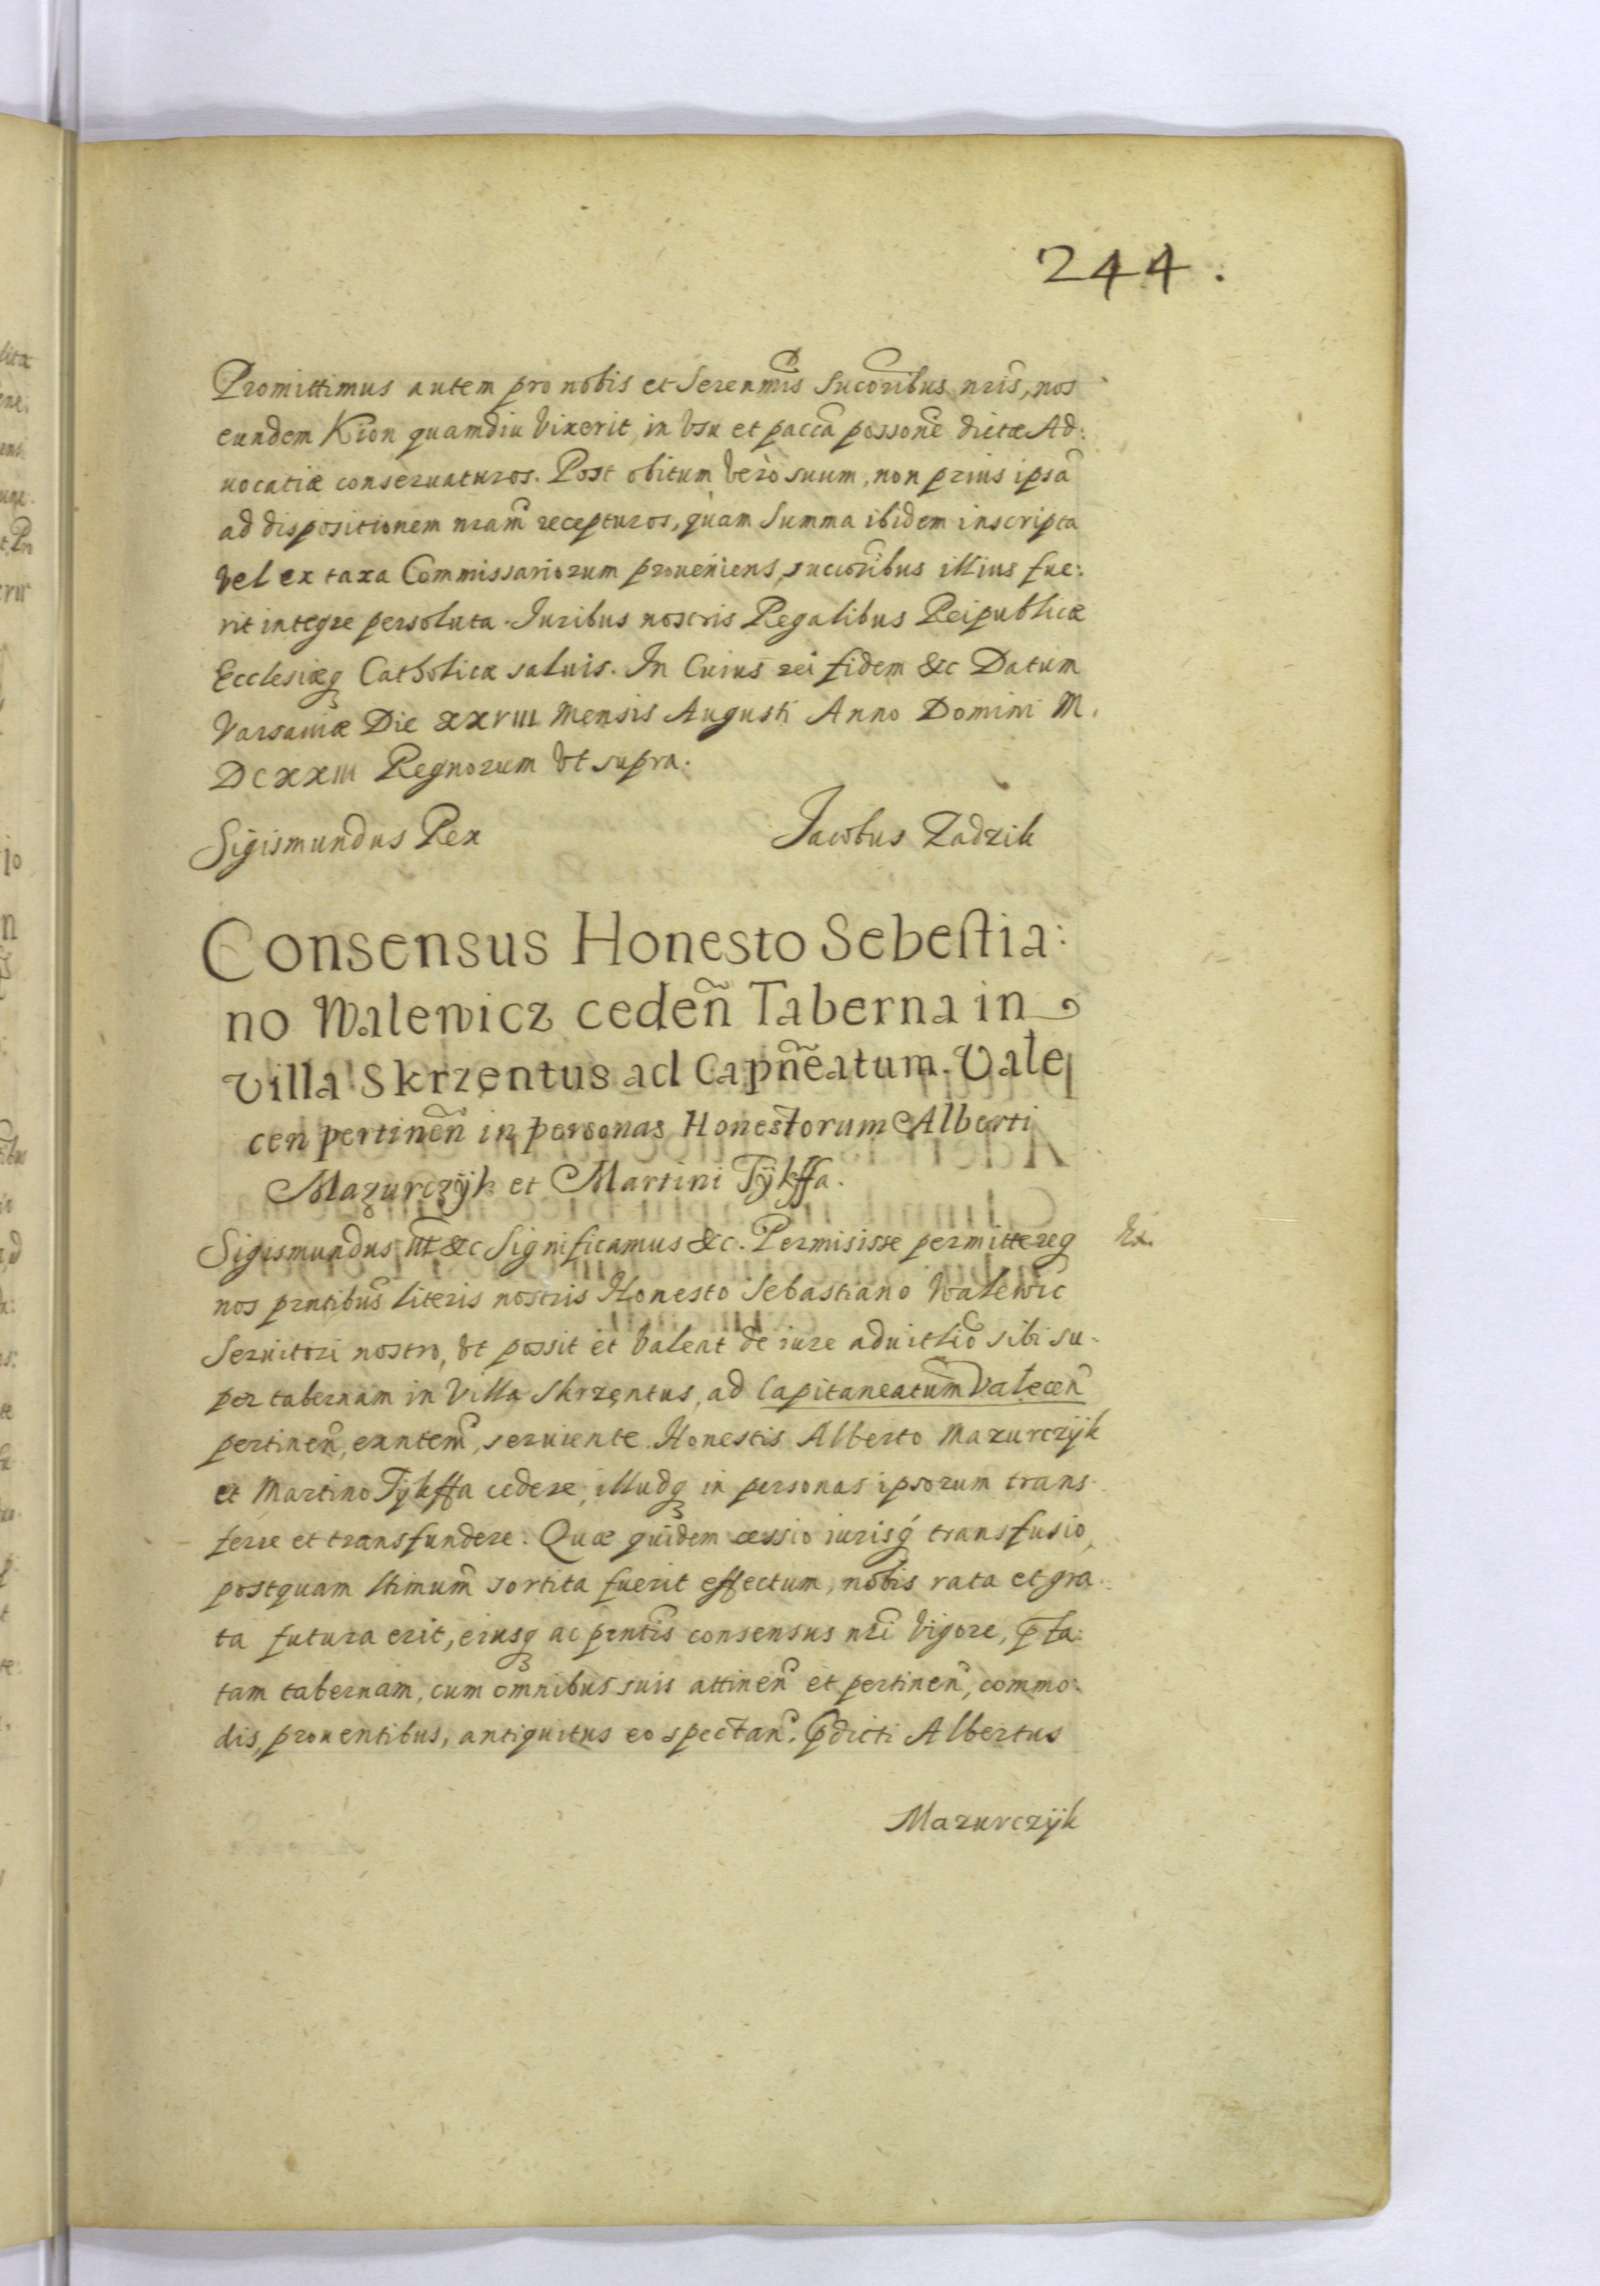 244.
Promittimus autem pro nobis et Serenmis Sucoribus nris, nos
eundem Kion quamdiu vixerit, in vsu et pacca possone dictæ Ad:
uocatiæ conseruaturos. Post obitum verò suum, non prius ipsa
ad dispositionem nram recepturos, quàm Summa ibidem inscripta
vel ex taxa Commissariorum proueniens, succoribus illius fue:
rit integre persoluta. Iuribus nostris Regalibus Reipublicæ
Ecclesiæq Catholicæ saluis. In Cuius rei fidem &c Datum
Varsauiæ Die XXVIII Mensis Augusti Anno Domini M.
DCXXIII Regnorum vt supra.
Sigismundus Rex Iacobus Zadzik
Consensus Honesto Sebestia:
no Walewicz ceden Taberna in
Villa Skrzentus ad Capneatum Vale
cen pertinen in personas Honestorum Alberti
Mazurczÿk et Martini Tÿkffa.
Sigismundus III &c Significamus &c. Permisisse permittereq
nos prntibus literis nostris Honesto Sebastiano Walewic
Seruitori nostro, vt possit et valeat de iure aduitlio sibi su-
per tabernam in Villa Skrzęntus, ad Capitaneatum Valecen
pertinen, exntem, seruiente Honestis Alberto Mazurczÿk
et Martino Tÿkffa cedere, illudq in personas ipsorum trans-
ferre et transfundere. Quæ quidem cessio iurisq transfusio,
postquam ltimum sortita fuerit effectum, nobis rata et gra
ta futura erit, eiusq ac prntis consensus nri vigore, pfa:
tam tabernam, cum omnibus suis attinen et pertinen, commo:
dis, prouentibus, antiquitus eo spectan. pdicti Albertus
Mazurczÿk